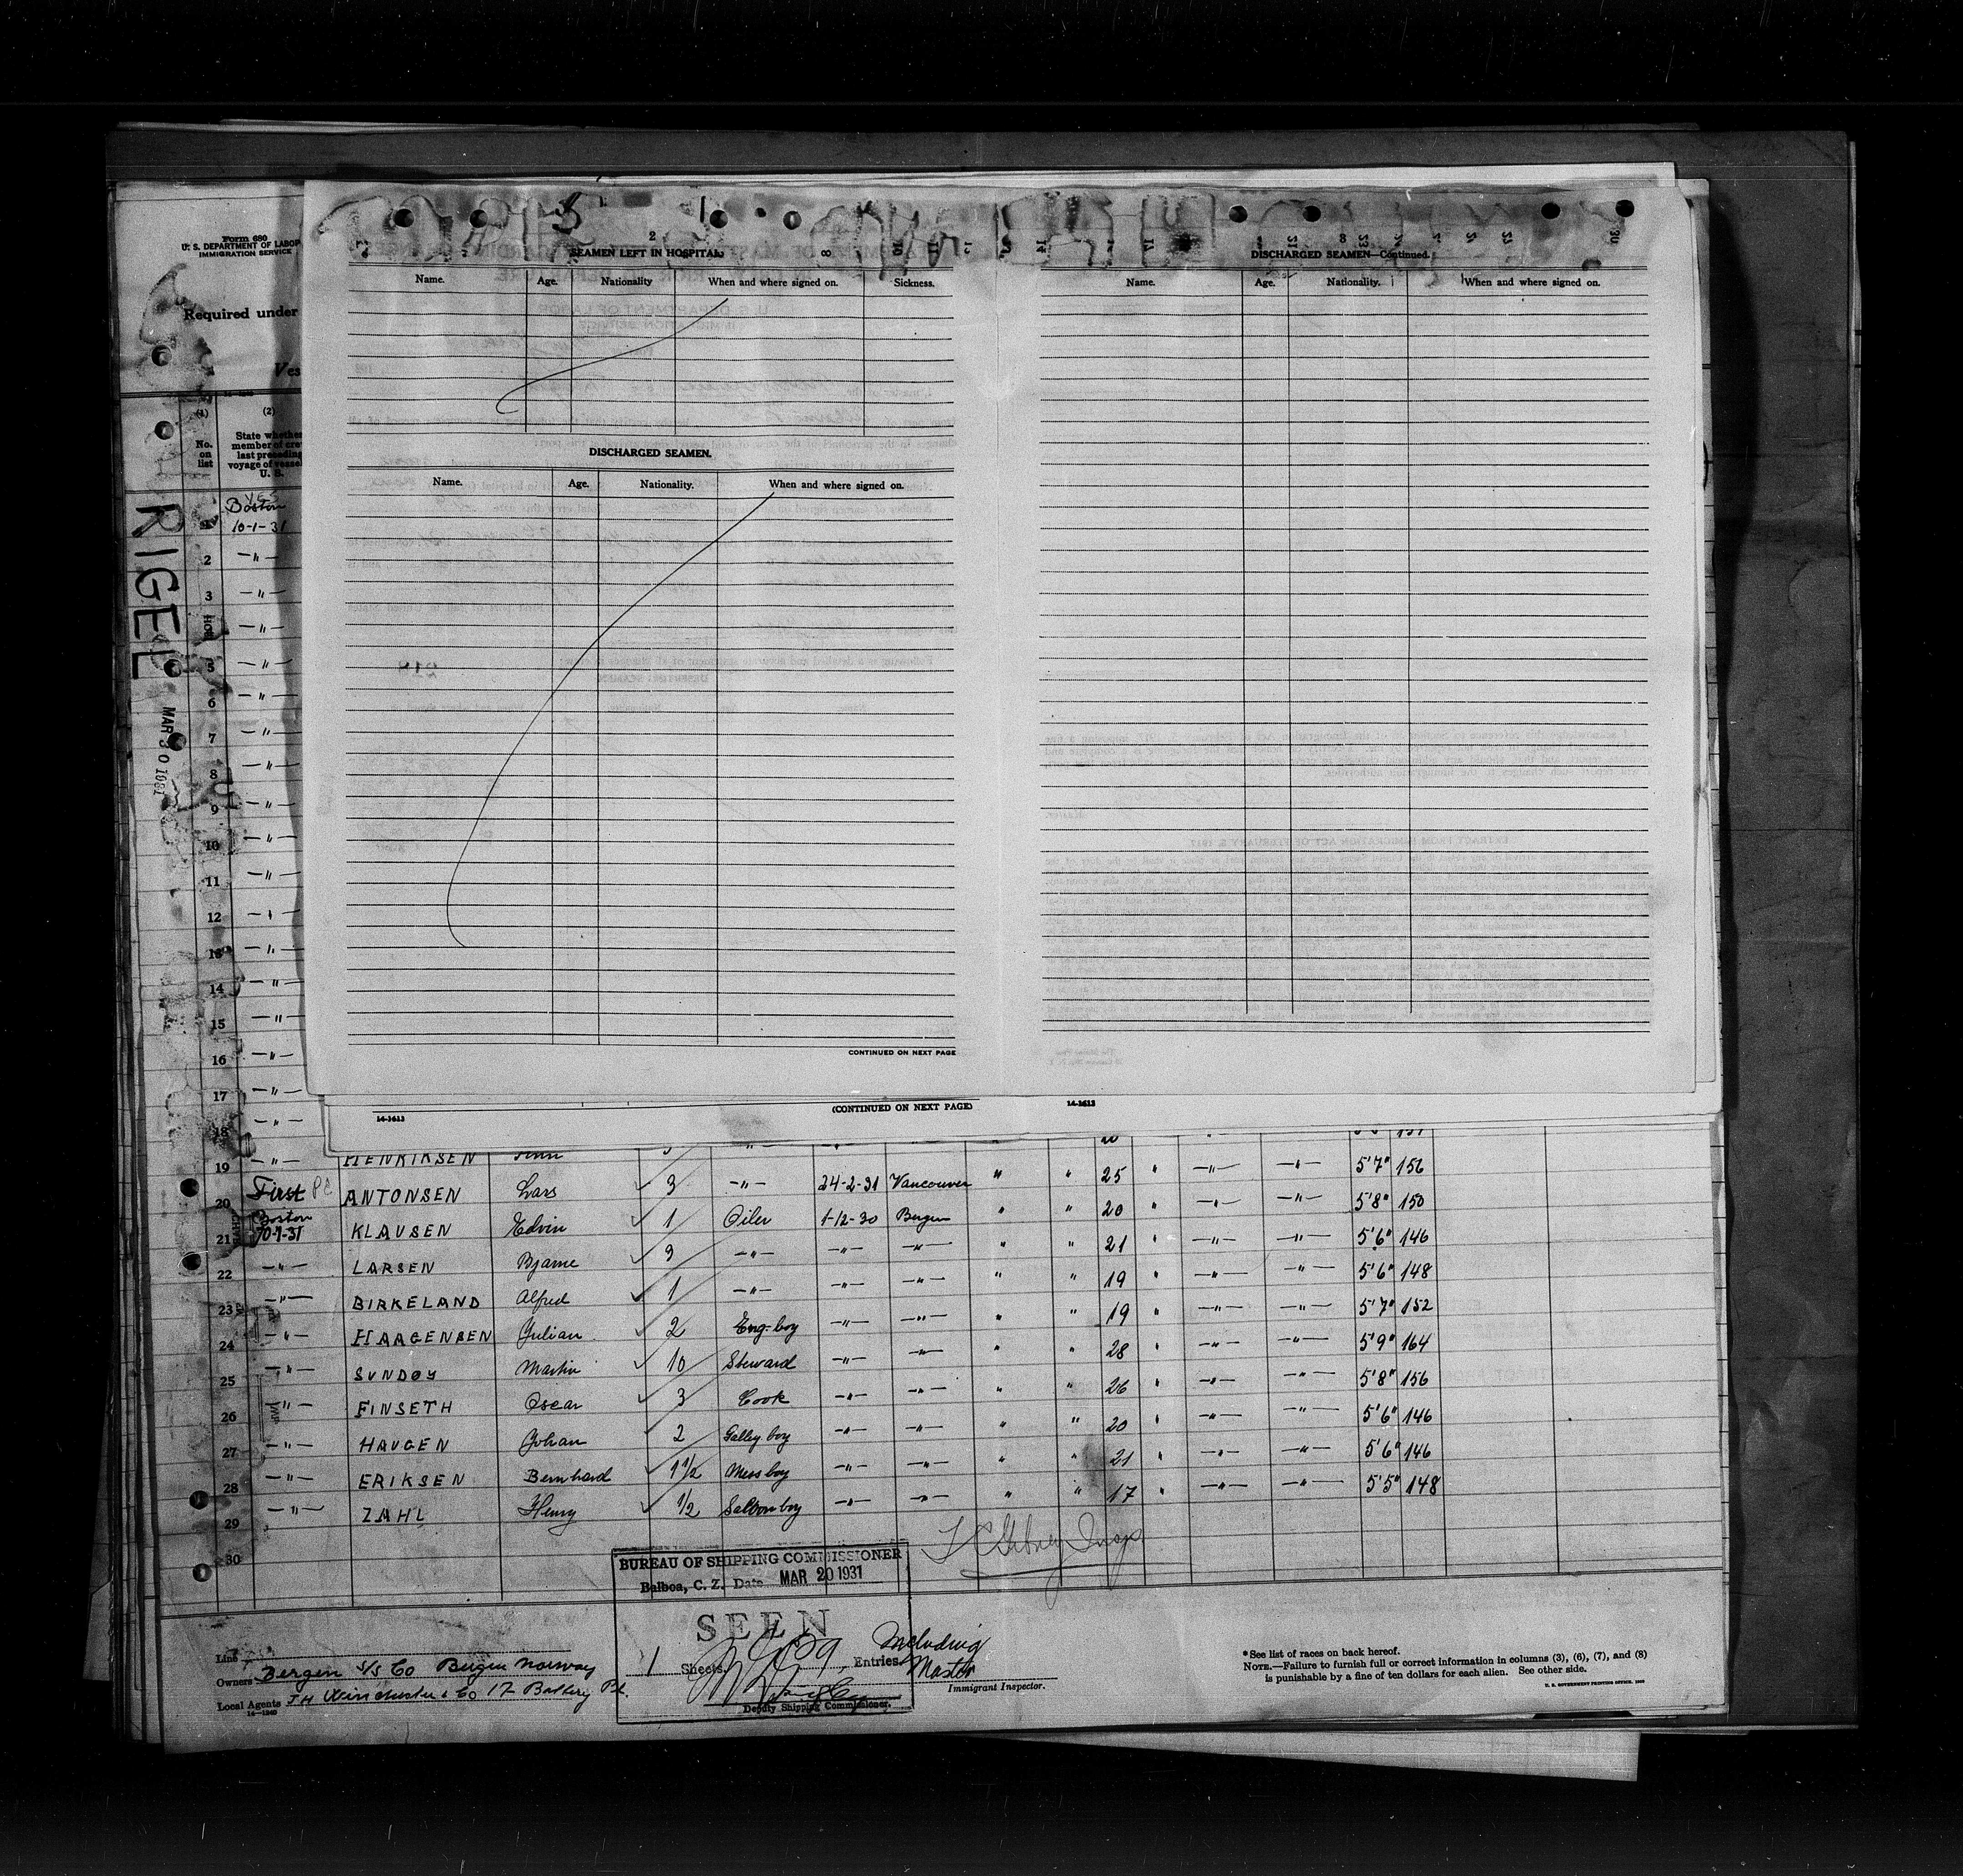 Form 680
U. S. DEPARTMENT OF LABOR
IMMIGRATION SERVICE
Required under
Ves
(1) (2)
No. on list
State whether member of crew last preceding voyage of vessel U. S.
RIGEL
MAR 30 1931
2
SEAMEN LEFT IN HOSPITAL
Name. Age. Nationality When and where signed on. Sickness.
DISCHARGED SEAMEN.
Name. Age. Nationality. When and where signed on.
CONTINUED ON NEXT PAGE
DISCHARGED SEAMEN—Continued.
Name. Age. Nationality. When and where signed on.
14-1613 (CONTINUED ON NEXT PAGE) 14-1613
yes
Boston
10-1-31
2 —"—
3 —"—
—"—
5 —"—
6 —"—
7 —"—
8 —"—
9 —"—
10 —"—
11 —"—
12 —"—
13 —"—
14 —"—
15 —"—
16 —"—
17 —"—
18 —"—
19 —"— HENRIKSEN 25 " —"— —"— 5'7" 156
20 First ANTONSEN Lars 3 —"— 24-2-31 Vancouver " " 20 " —"— —"— 5'8" 150
21 Boston 10-1-31 KLAUSEN Edvin 1 Oiler 1-12-30 Bergen " " 21 " —"— —"— 5'6" 146
22 —"— LARSEN Bjarne 3 —"— —"— —"— " " 19 " —"— —"— 5'6" 148
23 —"— BIRKELAND Alfred 1 —"— —"— —"— " " 19 " —"— —"— 5'7" 152
24 —"— HAAGENSEN Julian 2 Eng. boy —"— —"— " " 28 " —"— —"— 5'9" 164
25 —"— SUNDØY Martin 10 Steward —"— —"— " " 26 " —"— —"— 5'8" 156
26 —"— FINSETH Oscar 3 Cook —"— —"— " " 20 " —"— —"— 5'6" 146
27 —"— HAUGEN Johan 2 Galley boy —"— —"— " " 21 " —"— —"— 5'6" 146
28 —"— ERIKSEN Bernhard 1 1/2 Mess boy —"— —"— " " 17 " —"— —"— 5'5" 148
29 —"— ZAHL Henry 1/2 Saloon boy —"— —"—
30
BUREAU OF SHIPPING COMMISSIONER
Balboa, C. Z. Date MAR 20 1931
SEEN
1 Sheets 29 Entries. Including Master
Deputy Shipping Commissioner.
Immigrant Inspector.
Line
Owners Bergen S/S Co Bergen Norway
Local Agents J H Winchester & Co 17 Battery Pl.
14—1240
* See list of races on back hereof.
NOTE.—Failure to furnish full or correct information in columns (3), (6), (7), and (8)
is punishable by a fine of ten dollars for each alien. See other side.
U. S. GOVERNMENT PRINTING OFFICE